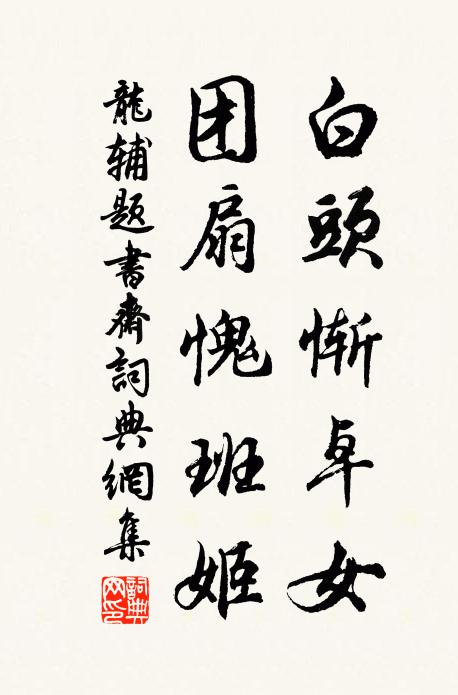 白頭慚卓女
团扇愧班姬
龍辅题書齋詞典網集
詞典网印